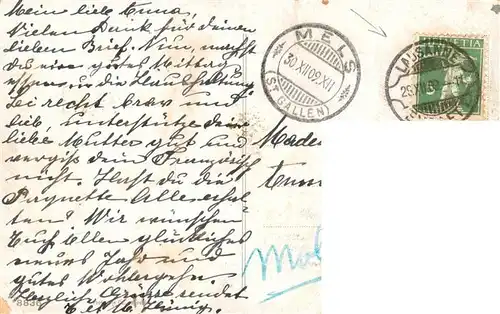 Mein liebe Emma
Vielen Dank für deinen
lieben Brief. Nun, machst
du eine gutes Mittag
essen u die Haushaltung.
Sei recht brav und
lieb, unterstütze deine
liebe Mutter gut und
vergiss dein Französisch
nicht. Hast du die
Paquette Alle erhal-
ten? Wir wünschen
Euch Allen glückliches
neues Jahr und
gutes Wohlergehn.
Herzliche Grüsse sendet
E. et M.
8836
MELS
30.XII.09.XII
(ST. GALLEN)
LAUSANNE
HELVETIA
Made
Emm
Mol